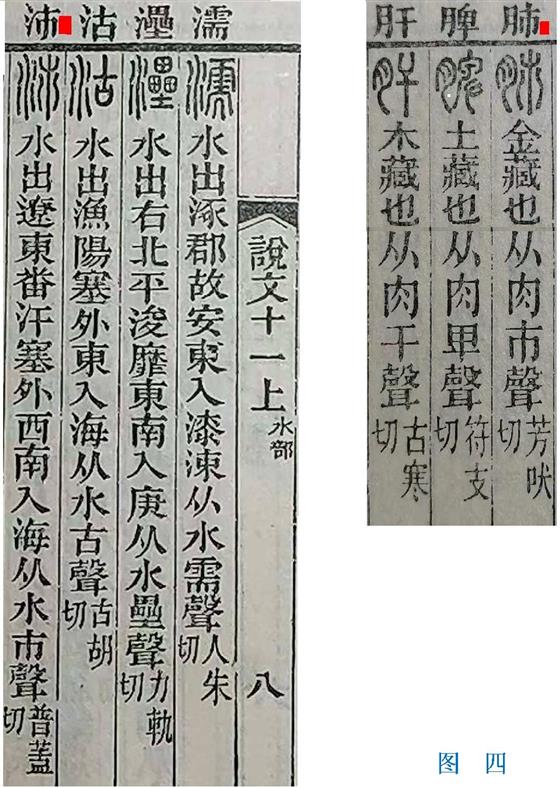 肺 脾 肝
肺 金藏也从肉巿聲芳吠切
脾 土藏也从肉卑聲符支切
肝 木藏也从肉干聲古寒切
濡 灅 沽 沛
說文十一上 水部 八
濡 水出涿郡故安東入漆涑从水需聲人朱切
灅 水出右北平浚靡東南入庚从水壘聲力軌切
沽 水出漁陽塞外東入海从水古聲古胡切
沛 水出遼東番汗塞外西南入海从水巿聲普蓋切
图 四